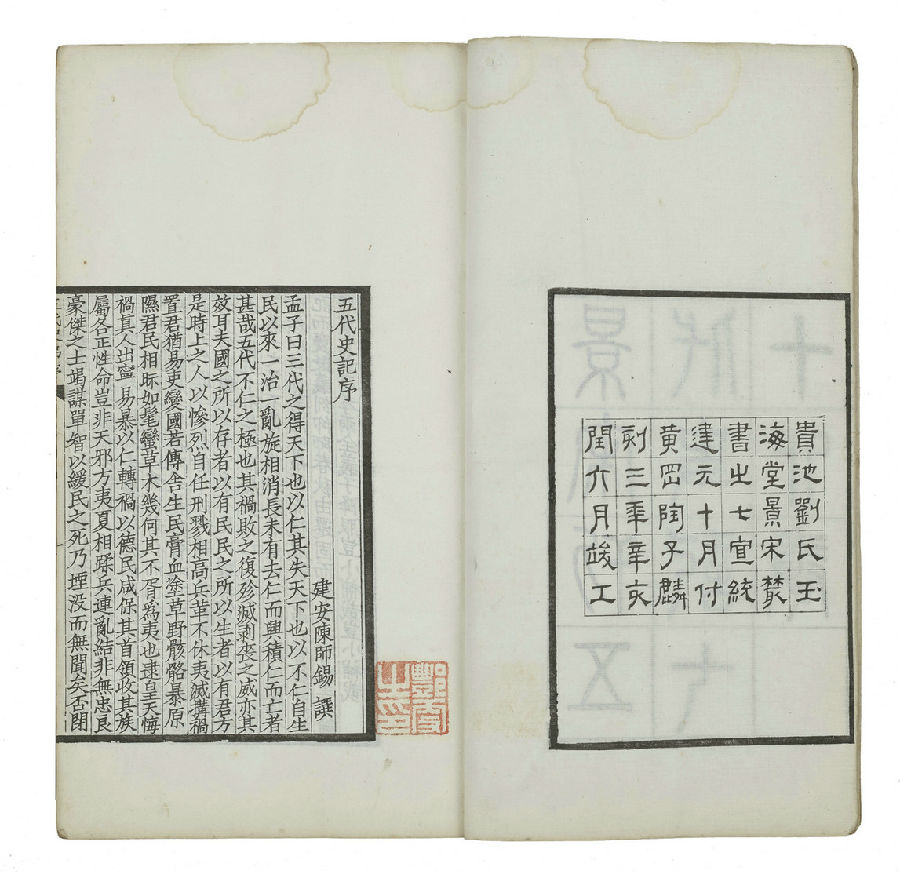 貴池劉氏玉
海堂景宋叢
書之七宣統
建元十月付
黄岡陶子麟
刻三年辛亥
閏六月竣工
五代史記序
建安陳師錫 撰
孟子曰三代之得天下也以仁其失天下也以不仁自生
民以來一治一亂旋相消長未有去仁而興積仁而亡者
甚哉五代不仁之極也其禍敗之復殄滅剥喪之威亦其
效耳夫國之所以存者以有民民之所以生者以有君方
是時上之人以慘烈自任刑戮相高兵革不休夷滅構禍
置君猶易吏變國若傳舍生民膏血塗草野骸骼暴原
隰君民相眎如髦蠻草木幾何其不胥爲夷也逮皇天悔
禍真人出寧易暴以仁轉禍以德民咸保其首領收其族
屬各正性命豈非天邪方夷夏相蹂兵連亂結非無忠良
豪傑之士竭謀單智以緩民之死乃堙没而無聞矣否閉